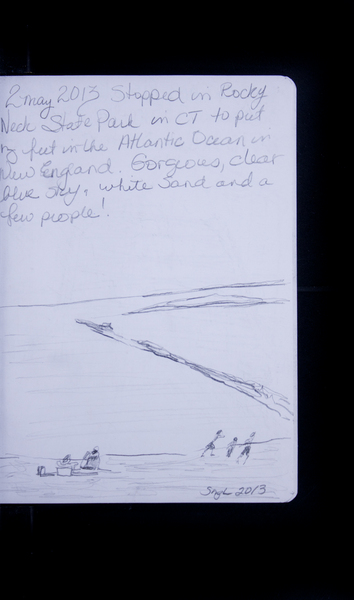 2 May 2013 Stopped in Rocky
Neck State Park in CT to put
my feet in the Atlantic Ocean in
New England. Gorgeous, clear
blue sky, white sand and a
few people!
2013